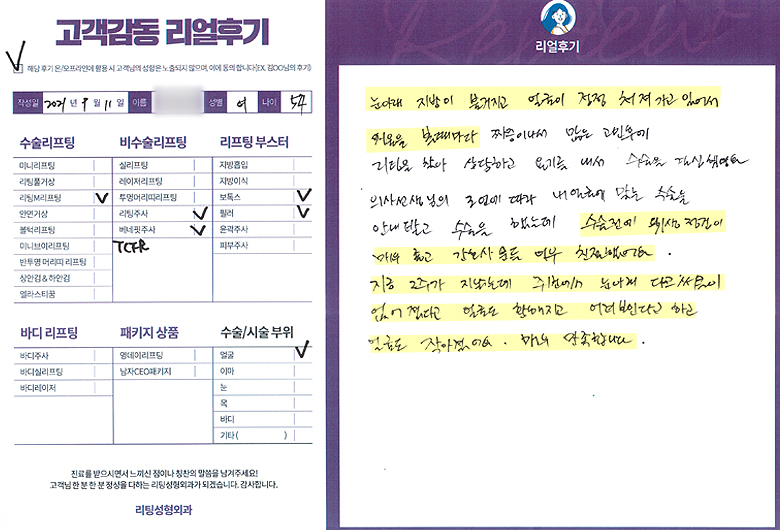 고객감동 리얼후기
해당 후기 온/오프라인에 활용 시 고객님의 성함은 노출되지 않으며, 이에 동의 합니다(EX. 김OO님의 후기)
작성일 2021년 9월 11일 이름 성별 여 나이 54
수술리프팅
미니리프팅
리팅풀거상
리팅M리프팅
안면거상
볼턱리프팅
미니브이리프팅
반투명 머리띠 리프팅
상안검 & 하안검
엘라스티꿈
비수술리프팅
실리프팅
레이저리프팅
투명머리띠리프팅
리팅주사
베네핏주사
TCFR
리프팅 부스터
지방흡입
지방이식
보톡스
필러
윤곽주사
피부주사
바디 리프팅
바디주사
바디실리프팅
바디레이저
패키지 상품
영데이리프팅
남자CEO패키지
수술/시술 부위
얼굴
이마
눈
목
바디
기타 ( )
진료를 받으시면서 느끼신 점이나 칭찬의 말씀을 남겨주세요!
고객님 한 분 한 분 정성을 다하는 리팅성형외과가 되겠습니다. 감사합니다.
리팅성형외과
리얼후기
눈아래 지방이 불거지고 얼굴이 점점 쳐져가고 있어서
거울을 볼때마다 짜증이나서 많은 고민끝에
리팅을 찾아 상담하고 용기를 내서 수술을 결심했어요
의사선생님의 조언에 따라 내 얼굴에 맞는 수술을
안내받고 수술을 했는데 수술전에 위생 점검이
매우 좋고 간호사분들 모두 친절했어요.
지금 2주가 지났는데 주위에서 눈아래 다크써클이
없어졌다고 얼굴도 환해지고 어려보인다고 하고
얼굴도 작아졌어요. 매우 만족합니다.